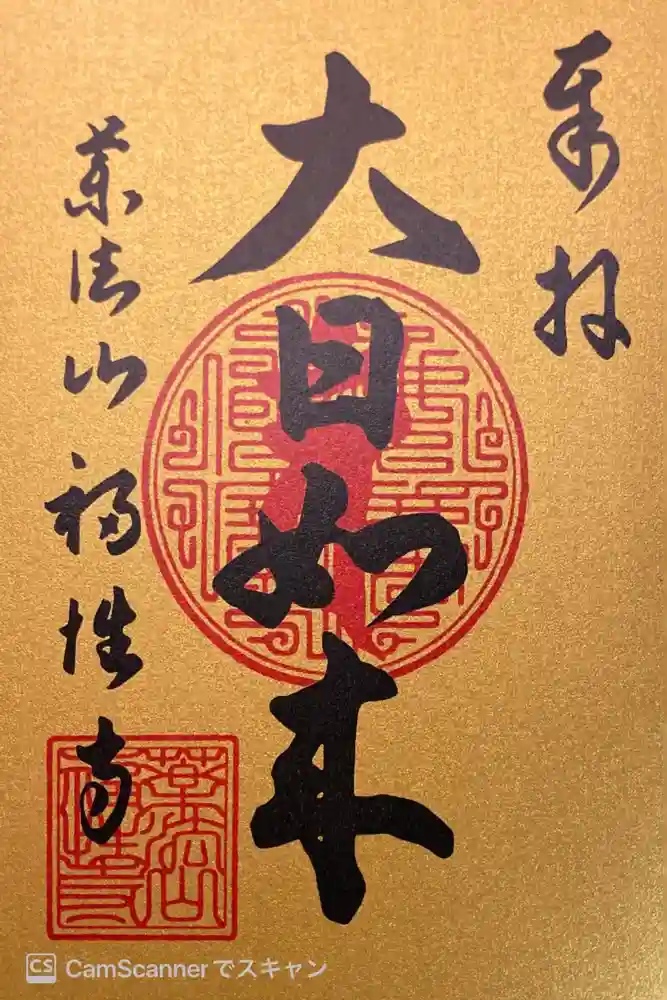 奉拝
大日如来
薬法山 福性寺
CS CamScannerでスキャン